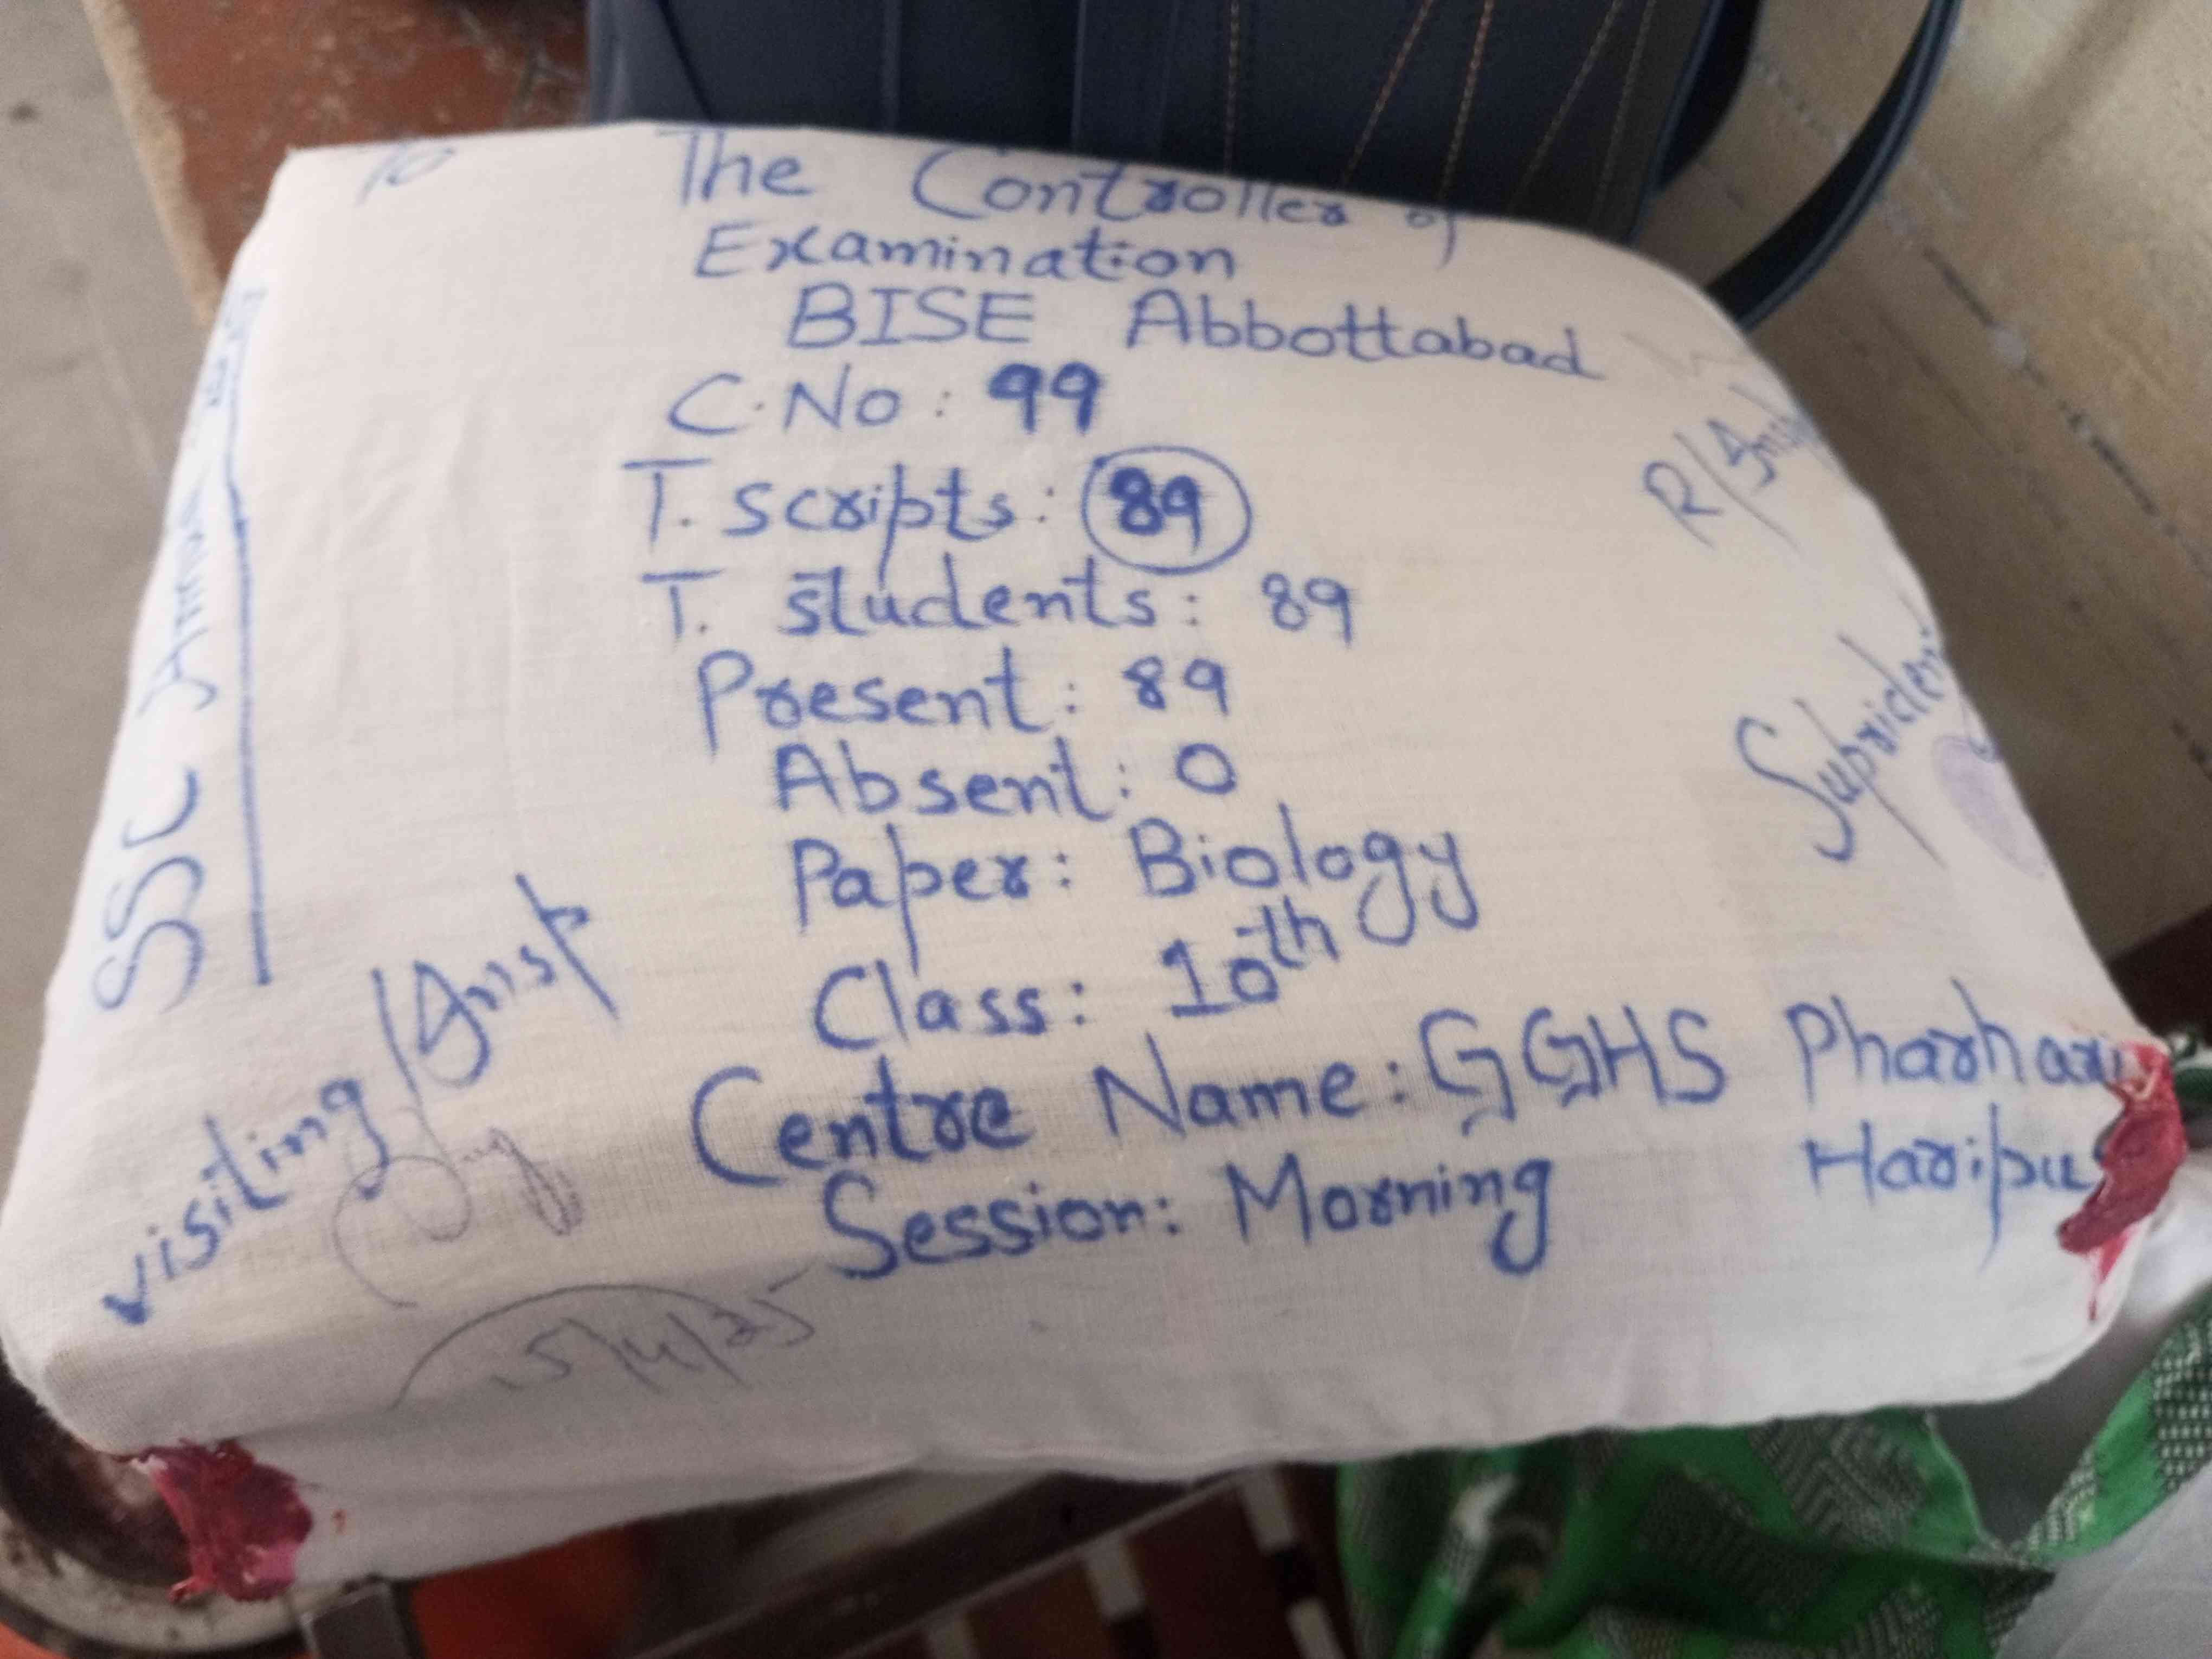 To
The Controller of
Examination
BISE Abbottabad
C.No: 99
T. scripts: 89
T. students: 89
Present: 89
Absent: 0
Paper: Biology
Class: 10th
Centre Name: GGHS Pharhari
Haripur
Session: Morning
SSC
visiting/
R/
5/4/25